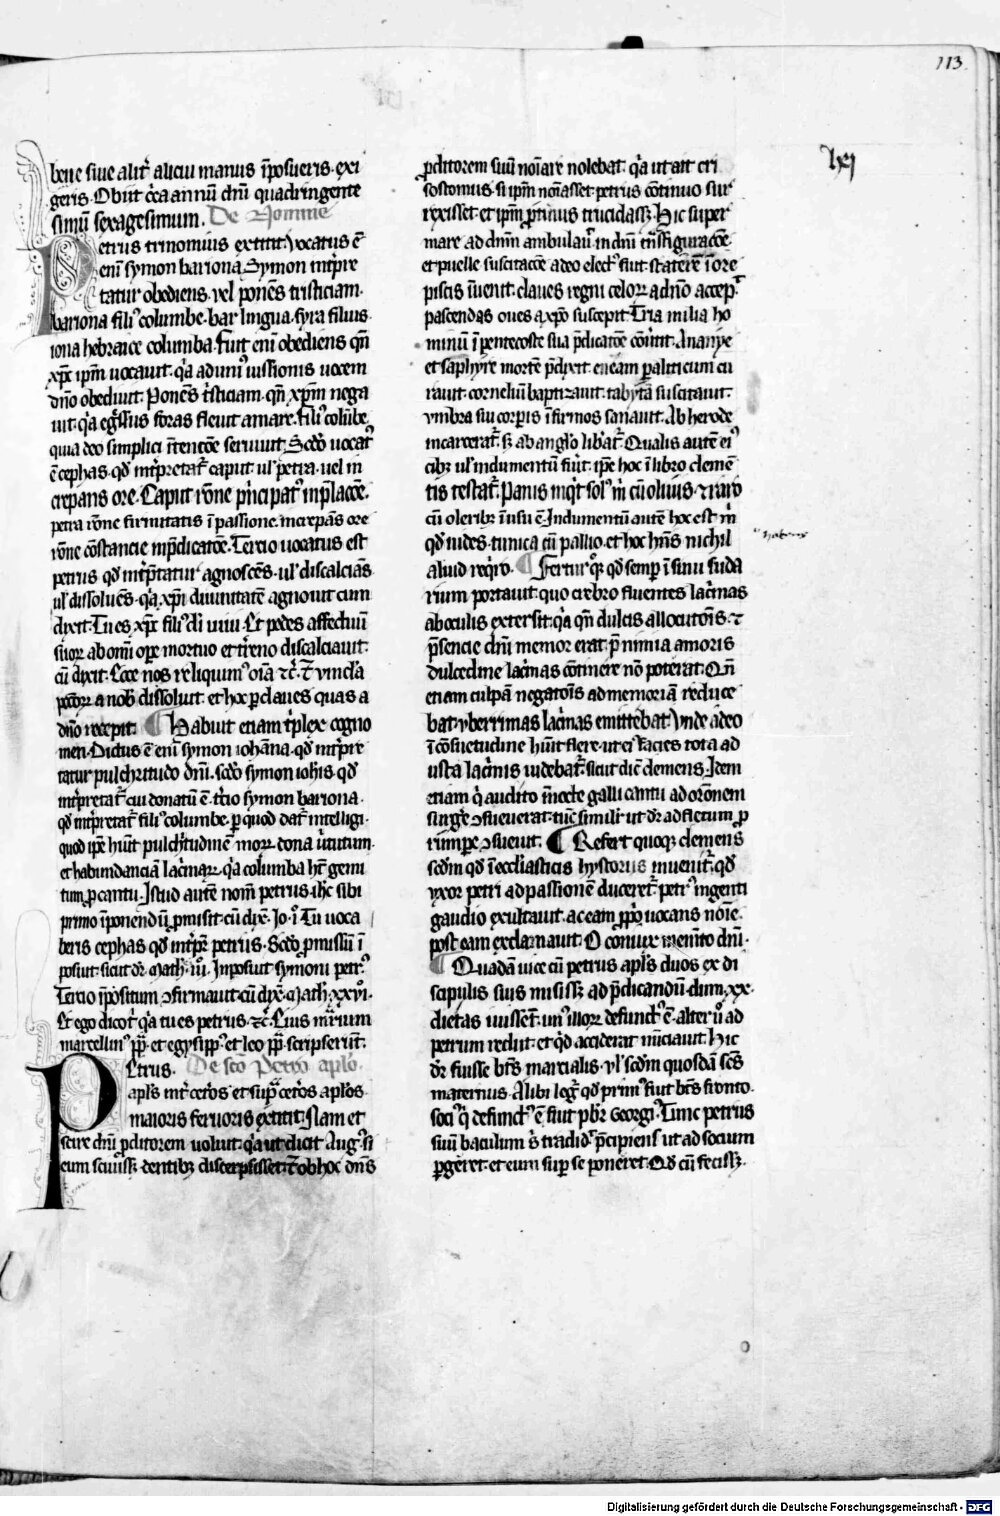 113
lxj
bene siue alit᷑ alicui manus īposueris. exi
geris. Obiit c̄ca annū dn̄i quadringente
simū sexagesimum. De Nomine
Petrus trinomius extitit. Vocatus ē
enī symon bariona. Symon int̄pre
tatur obediens. vel ponēs tristiciam.
bariona filiꝰ columbe. bar lingua syra filius.
iona hebraice columba. Fuit enī obediens qn̄
xp̄c ipm̄ uocauit. qͥa ad unīꝰ iussionis uocem
dn̄o obediuit. Ponēs tͥsticiam. qn̄ xp̄m nega
uit. qͥa eg̃ssus foras fleuit amare. filiꝰ colūbe.
quia deo simplici īntenc̄oe seruiuit. Scd̄o uocatꝰ
ē cephas. qd̄ int̄pretat᷑ caput. ul̓ petra. uel in
crepans ore. Caput rōne pͥncipatꝰ inp̄lac̄oe.
petra rōne firmitatis ī passione. increpās ore
rōne cōstancie inp̄dicac̄oe. Tercio uocatus est
petrus qd̄ int̄p̄tatur agnoscēs. ul̓ discalciās.
ul̓ dissoluēs. qͥa xp̄i diuinitatē agnouit cum
dixit. Tu es xp̄c filiꝰ dī uiui. Et pedes affectuū
suoꝝ ab om̄i oꝑe mortuo et t̄reno discalciauit.
cū dixit. Ecce nos reliquimꝰ oīa ⁊c̄. ⁊ vincl̓a
pec̄oꝝ a nob̓ dissoluit. et hoc ꝑ claues quas a
dn̄o recepit. ¶ Habuit etiam tͥplex cogno
men. Dictus ē enī symon iohāna. qd̄ int̄pre
tatur pulchritudo dn̄i. scd̄o symon ioh̄is qd̄
int̄pretat᷑ cui donatū ē. tͨcio symon bariona.
qd̄ int̄pretat᷑ filiꝰ columbe. ꝑ quod dat᷑ intelligi.
quod ip̄e hūit pulchͥtudinē moꝝ. dona uͥtutum.
et habundanciā lacͥmaꝝ. qͥa columba hꝫ gemi
tum ꝓ cantu. Istud autē nom̄ petrus. ih̄c sibi
primo īponendū ꝓmisit. cū dix̄. Jo. ī. Tu uoca
beris cephas qd̄ int̄pͬ petrus. Scd̄o ꝓmissū ī
posuit. sicut dr̄ Math̓. iiī. Inposuit symoni petrꝰ.
Tercio īpositum ꝯfirmauit. cū dix̄. Math̓. xxvī.
Et ego dico t᷑. qͥa tu es petrus. ⁊c̄. Eius mr̄ium
marcellinꝰ pp̄. et egysippꝰ. et leo pp̄ scripserūt.
Petrus. De sc̄o Petro apl̓o.
apl̓s int̄ cet̓os et supͣ cet̓os apl̓os
maioris feruoris extitit. Nam et
scire dn̄i ꝓditorem uoluit. qͥa ut dicit Augꝰ. si
eum sciuissꝫ. dentibꝫ discerpsisset. ⁊ ob hoc dn̄s
ꝓditorem suū noīare nolebat. qͥa ut ait cri
sostomus. si ipm̄ noīasset. petrus cōtinuo sur
rexisset. et ipm̄ ꝓtinus trucidassꝫ. Hic super
mare ad dn̄m ambulauͥ. in dn̄i tͣnsfigurac̄oe.
et puelle suscitac̄oe adeo electꝰ fuit. staterē ī ore
piscis īuenit. claues regni celoꝝ a dn̄o accepͥ.
pascendas oues a xp̄o suscepit. Tria milia ho
minū ī pentecoste sua p̄dicac̄oe cōuͥtit. Ananye
et saphyre mortē p̄dixit. eneam paliticum cu
rauit. corneliū baptizauit. tabytā suscitauit.
vmbra sui corꝑis īfirmos sanauit. Ab herode
incarcerat᷑. sꝫ ab angl̓o libat᷑. Qualis autē eiꝰ
cibꝰ ul̓ indumentū fūit. ip̄e hoc ī libro clemē
tis testat᷑. Panis inqͥt solꝰ m̄ cū oliuis. ⁊ raro
cū oleribꝫ ī usu ē. Indumentū autē hoc est m̄
qd̄ uides. tunica cū pallio. et hoc hn̄s nichil
aliud reqͥro. ¶ Fertur qꝫ qd̄ semꝑ ī sinu suda
rium portauit. quo crebro fluentes lacͥmas
ab oculis extersit. qͥa qn̄ dulcis allocutōis. ⁊
p̄sencie dn̄i memor erat. p̄ nimia amoris
dulcedine lacͥmas cōtinere nō poterat. Qn̄
etiam culpā negatōis ad memoriā reduce
bat. vberrimas lacͥmas emittebat. Vnde adeo
ī cōsuetudine hūit flere. ut ei facies tota ad
usta lacͥmis uidebat᷑. sicut dic̄ clemens. Idem
etiam qͥ audito ī nocte galli cantu ad orōnem
surgͤe ꝯsueuerat. tūc simili᷑ ut dr̄ ad fletum ꝓ
rumpe ꝯsueuit. ¶ Refert quoqꝫ clemens
scd̄m qd̄ ī eccl̓iasticis hystoriis inuenit᷑. qd̄
vxor petri ad passionē duceret᷑. petrꝰ ingenti
gaudio exultauit. ac eam ꝓpͥo uocans noīe.
post eam exclamauit. O coniux memēto dn̄i.
¶ Quadā uice cū petrus apl̓s duos ex di
scipulis suis misissꝫ ad p̄dicandū. dum .xx.
dietas iuissēt. unꝰ illoꝝ defunctꝰ ē. alter ū ad
petrum rediit. et qd̄ acciderat nūciauit. Hic
dr̄ fuisse bt̄s marcialis. vl̓ scd̄m quosdā sc̄s
maternus. Alibi legͥ qd̄ primꝰ fuit bt̄s fronto.
sociꝰ qͥ defunctꝰ ē fuit pbr̄ Georgiꝰ. Tunc petrus
suū baculum ei tradidͥ. p̄cipiens ut ad socium
ꝑgeret. et eum suꝑ se poneret. Qd̄ cū fecissꝫ.
Digitalisierung gefördert durch die Deutsche Forschungsgemeinschaft - DFG